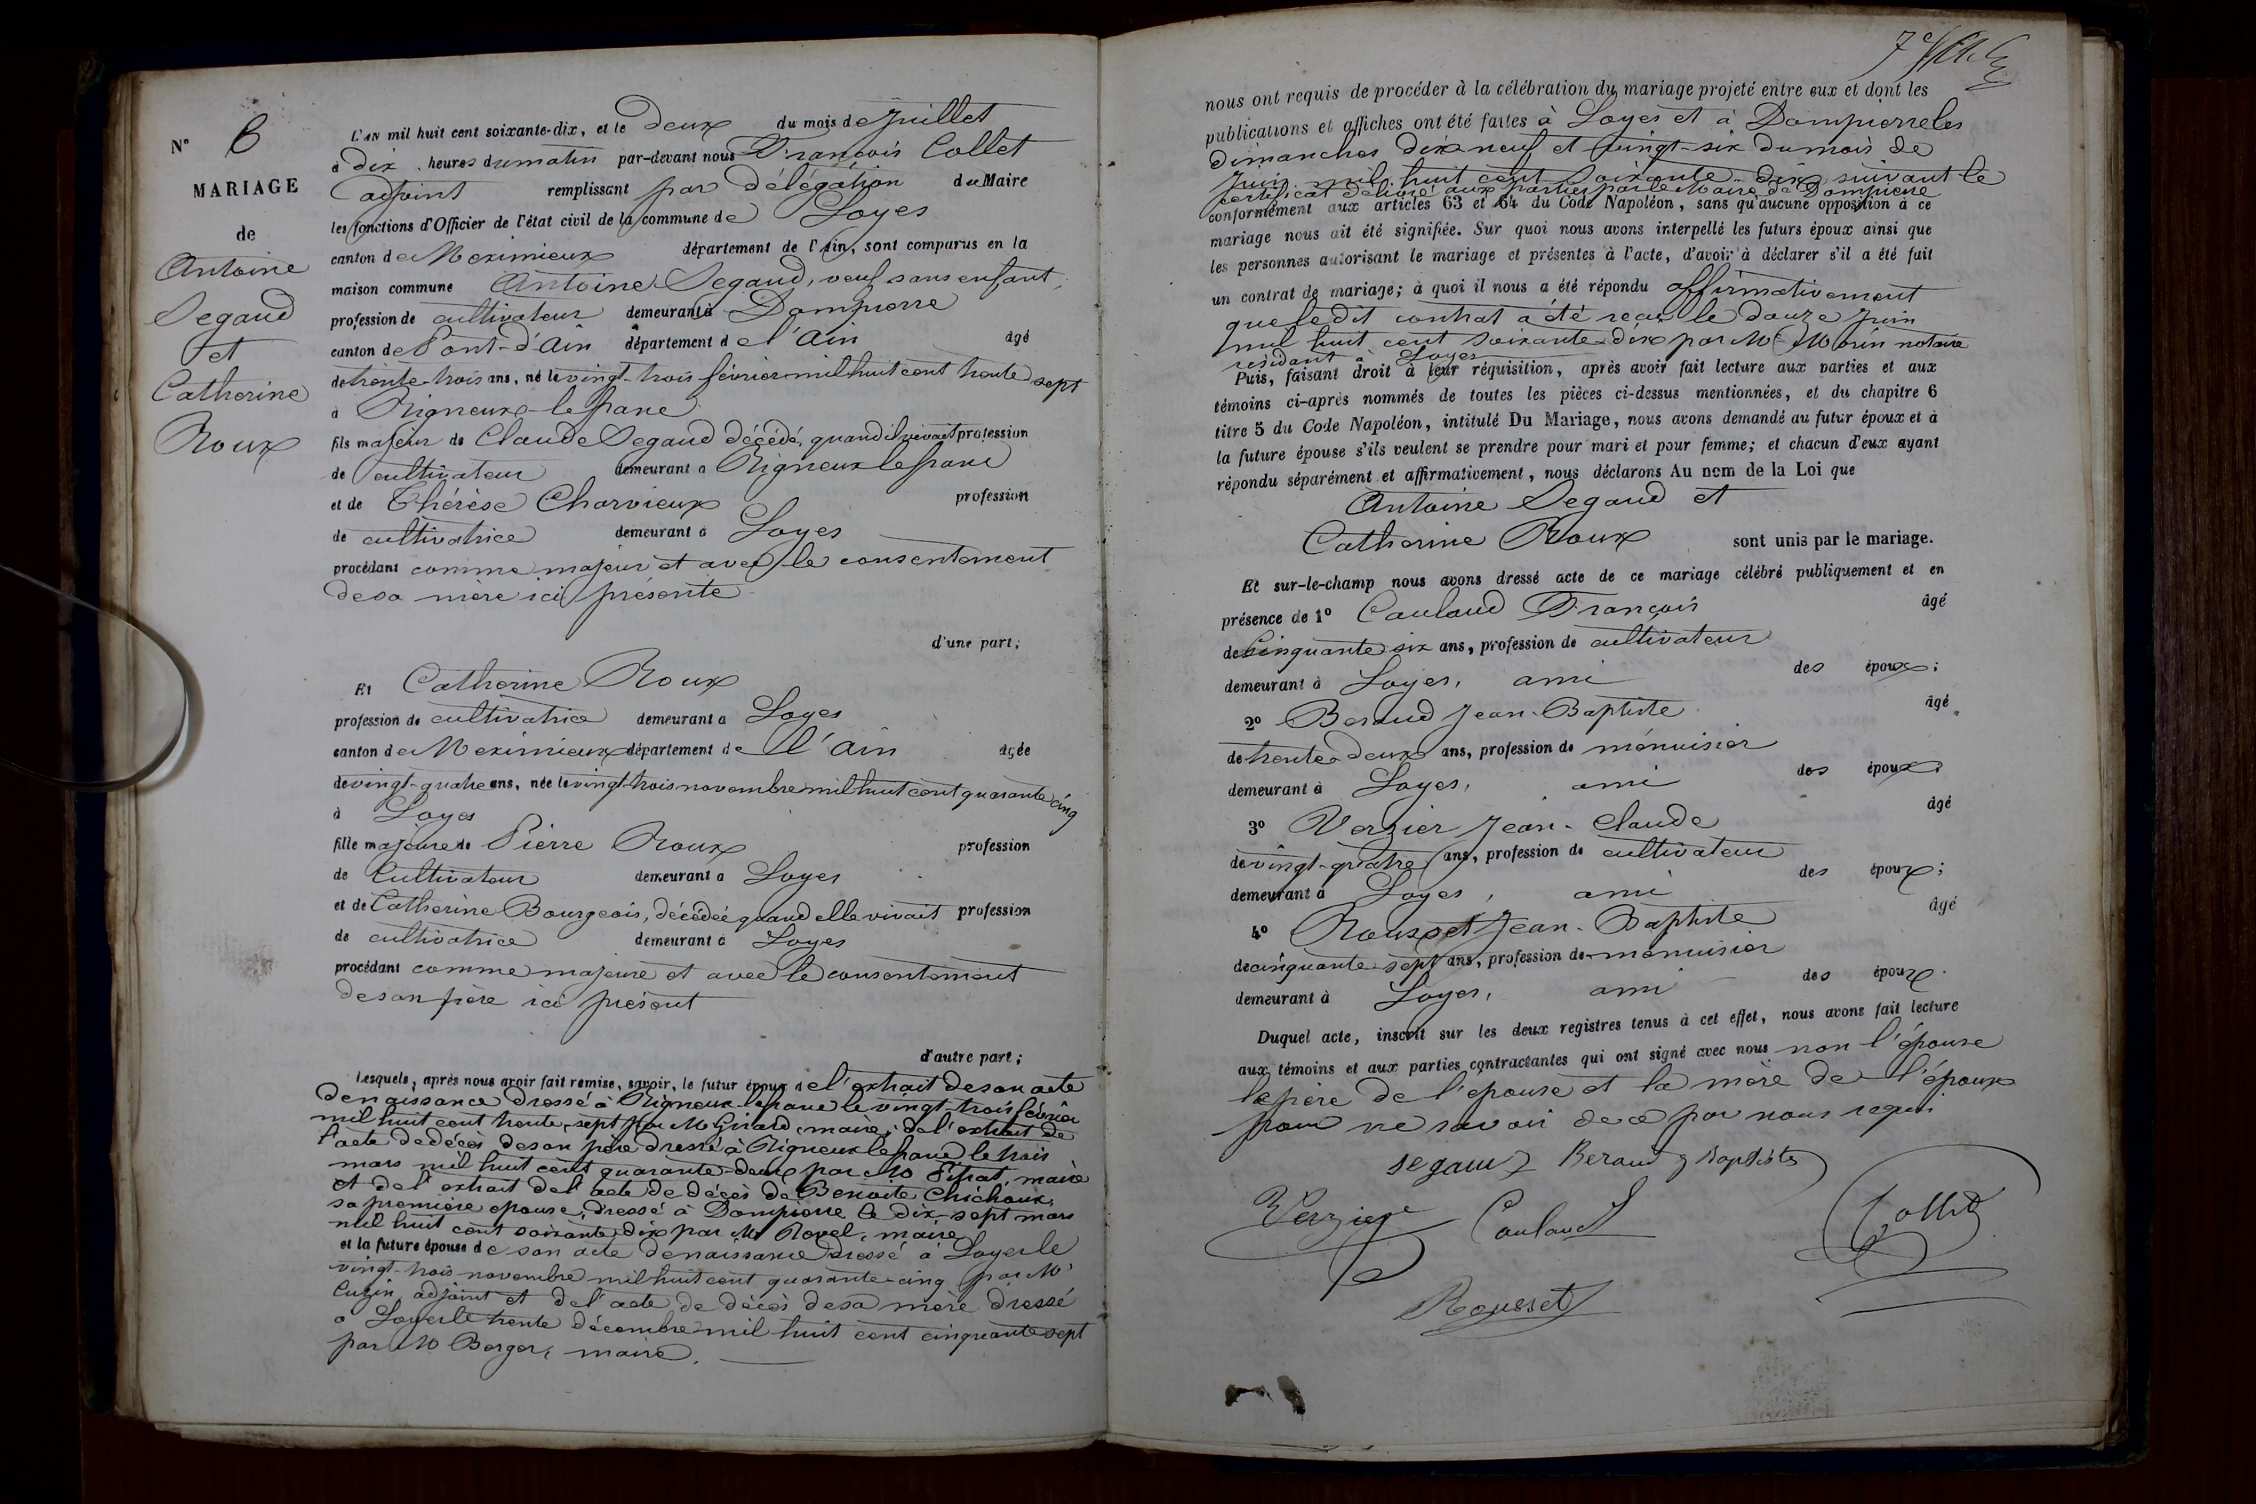 N° 6
MARIAGE
de
Antoine
Segaud
et
Catherine
Roux
L'AN mil huit cent soixante-dix, et le deux du mois de Juillet
à dix heures du matin par-devant nous François Collet
adjoint remplissant par délégation du Maire
les fonctions d'Officier de l'état civil de la commune de Loyes
canton de Meximieux département de l'Ain, sont comparus en la
maison commune Antoine Segaud, veuf sans enfant,
profession de cultivateur demeurant à Dompierre
canton de Pont-d'Ain département de l'Ain âgé
de trente-trois ans, né le vingt-trois février mil huit cent trente sept
à Rigneux-le franc
fils majeur de Claude Segaud décédé, quand il vivait profession
de cultivateur demeurant a Rigneux le franc
et de Thérèse Charvieux profession
de cultivatrice demeurant à Loyes
procédant comme majeur et avec le consentement
de sa mère ici présente
d'une part;
Et Catherine Roux
profession de cultivatrice demeurant a Loyes
canton de Meximieux département de l'Ain âgée
de vingt-quatre ans, née le vingt-trois novembre mil huit cent quarante cinq
à Loyes
fille majeure de Pierre Roux profession
de Cultivateur demeurant a Loyes
et de Catherine Bourgeois, décédée quand elle vivait profession
de cultivatrice demeurant à Loyes
procédant comme majeure et avec le consentement
de son père ici présent
d'autre part;
Lesquels, après nous avoir fait remise, savoir, le futur époux de l'extrait de son acte
de naissance dressé à Rigneux-le franc le vingt-trois février
mil huit cent trente-sept par M Girard, maire; de l'extrait de
l'acte de décès de son père dressé à Rigneux le franc le trois
mars mil huit cent quarante-deux par M maire
et de l'extrait de l'acte de décès de Benoite Chichoux,
sa première épouse, dressé à Dompierre le dix-sept mars
mil huit cent soixante dix par M Rovel, maire
et la future épouse de son acte de naissance dressé à Loyes le
vingt-trois novembre mil huit cent quarante-cinq par M
Cuzin, adjoint et de l'acte de décès de sa mère dressé
à Loyes le trente décembre mil huit cent cinquante sept
par M Berger, maire.
7e
nous ont requis de procéder à la célébration du mariage projeté entre eux et dont les
publications et affiches ont été faites à Loyes et à Dompierre les
dimanches dix-neuf et vingt-six du mois de
Juin mil huit cent soixante-dix, suivant le
certificat délivré aux parties par le Maire de Dompierre
conformément aux articles 63 et 64 du Code Napoléon, sans qu'aucune opposition à ce
mariage nous ait été signifiée. Sur quoi nous avons interpellé les futurs époux ainsi que
les personnes autorisant le mariage et présentes à l'acte, d'avoir à déclarer s'il a été fait
un contrat de mariage; à quoi il nous a été répondu affirmativement
que ledit contrat a été reçu le douze juin
mil huit cent soixante-dix par Me Morin notaire
résidant à Loyes
Puis, faisant droit à leur réquisition, après avoir fait lecture aux parties et aux
témoins ci-après nommés de toutes les pièces ci-dessus mentionnées, et du chapitre 6
titre 5 du Code Napoléon, intitulé Du Mariage, nous avons demandé au futur époux et à
la future épouse s'ils veulent se prendre pour mari et pour femme; et chacun d'eux ayant
répondu séparément et affirmativement, nous déclarons Au nom de la Loi que
Antoine Segaud et
Catherine Roux sont unis par le mariage.
Et sur-le-champ nous avons dressé acte de ce mariage célébré publiquement et en
présence de 1° Caulaud François âgé
de Cinquante six ans, profession de cultivateur
demeurant à Loyes, ami des époux;
2° Beraud Jean-Baptiste âgé
de trente-deux ans, profession de ménuisier
demeurant à Loyes, ami des époux;
3° Verzier Jean-Claude âgé
de vingt-quatre ans, profession de cultivateur
demeurant à Loyes, ami des époux;
4° Rousset Jean-Baptiste âgé
de cinquante sept ans, profession de menuisier
demeurant à Loyes, ami des époux.
Duquel acte, inscrit sur les deux registres tenus à cet effet, nous avons fait lecture
aux témoins et aux parties contractantes qui ont signé avec nous non l'épouse
le père de l'épouse et la mère de l'époux
pour ne savoir de ce par nous requis
segaud Beraud J Baptiste
Verzier Caulaud Collet
Rousset